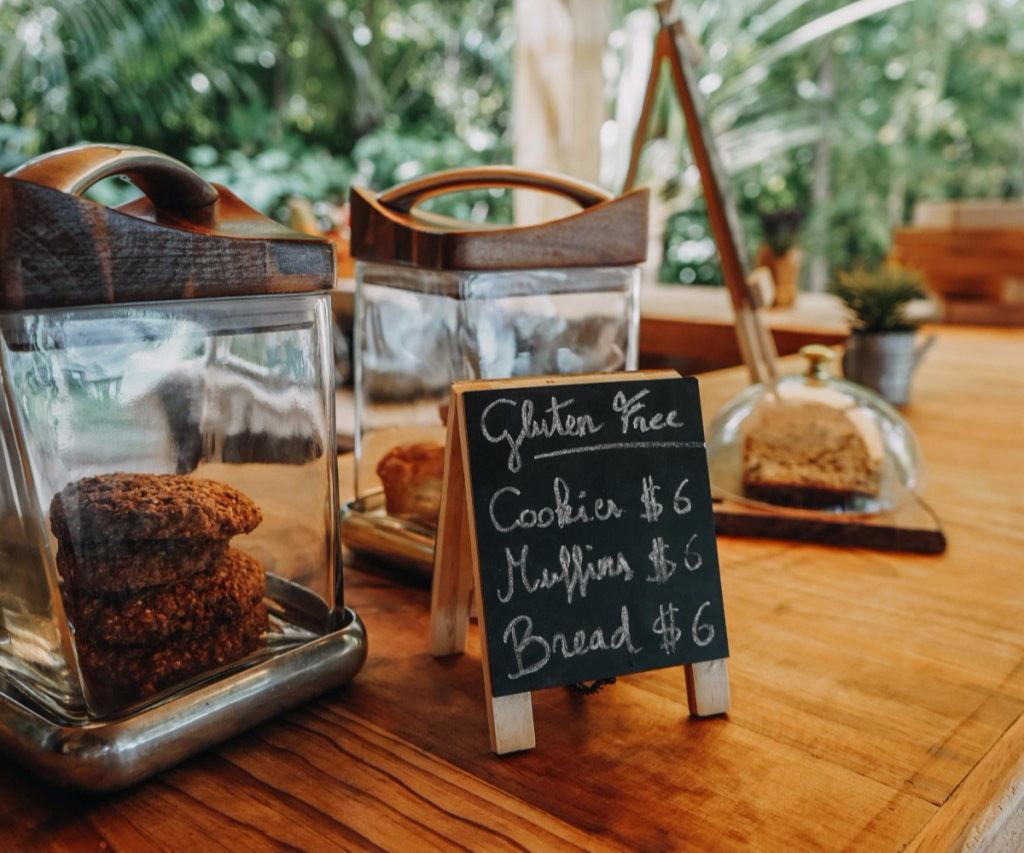 Gluten Free
Cookies $6
Muffins $6
Bread $6